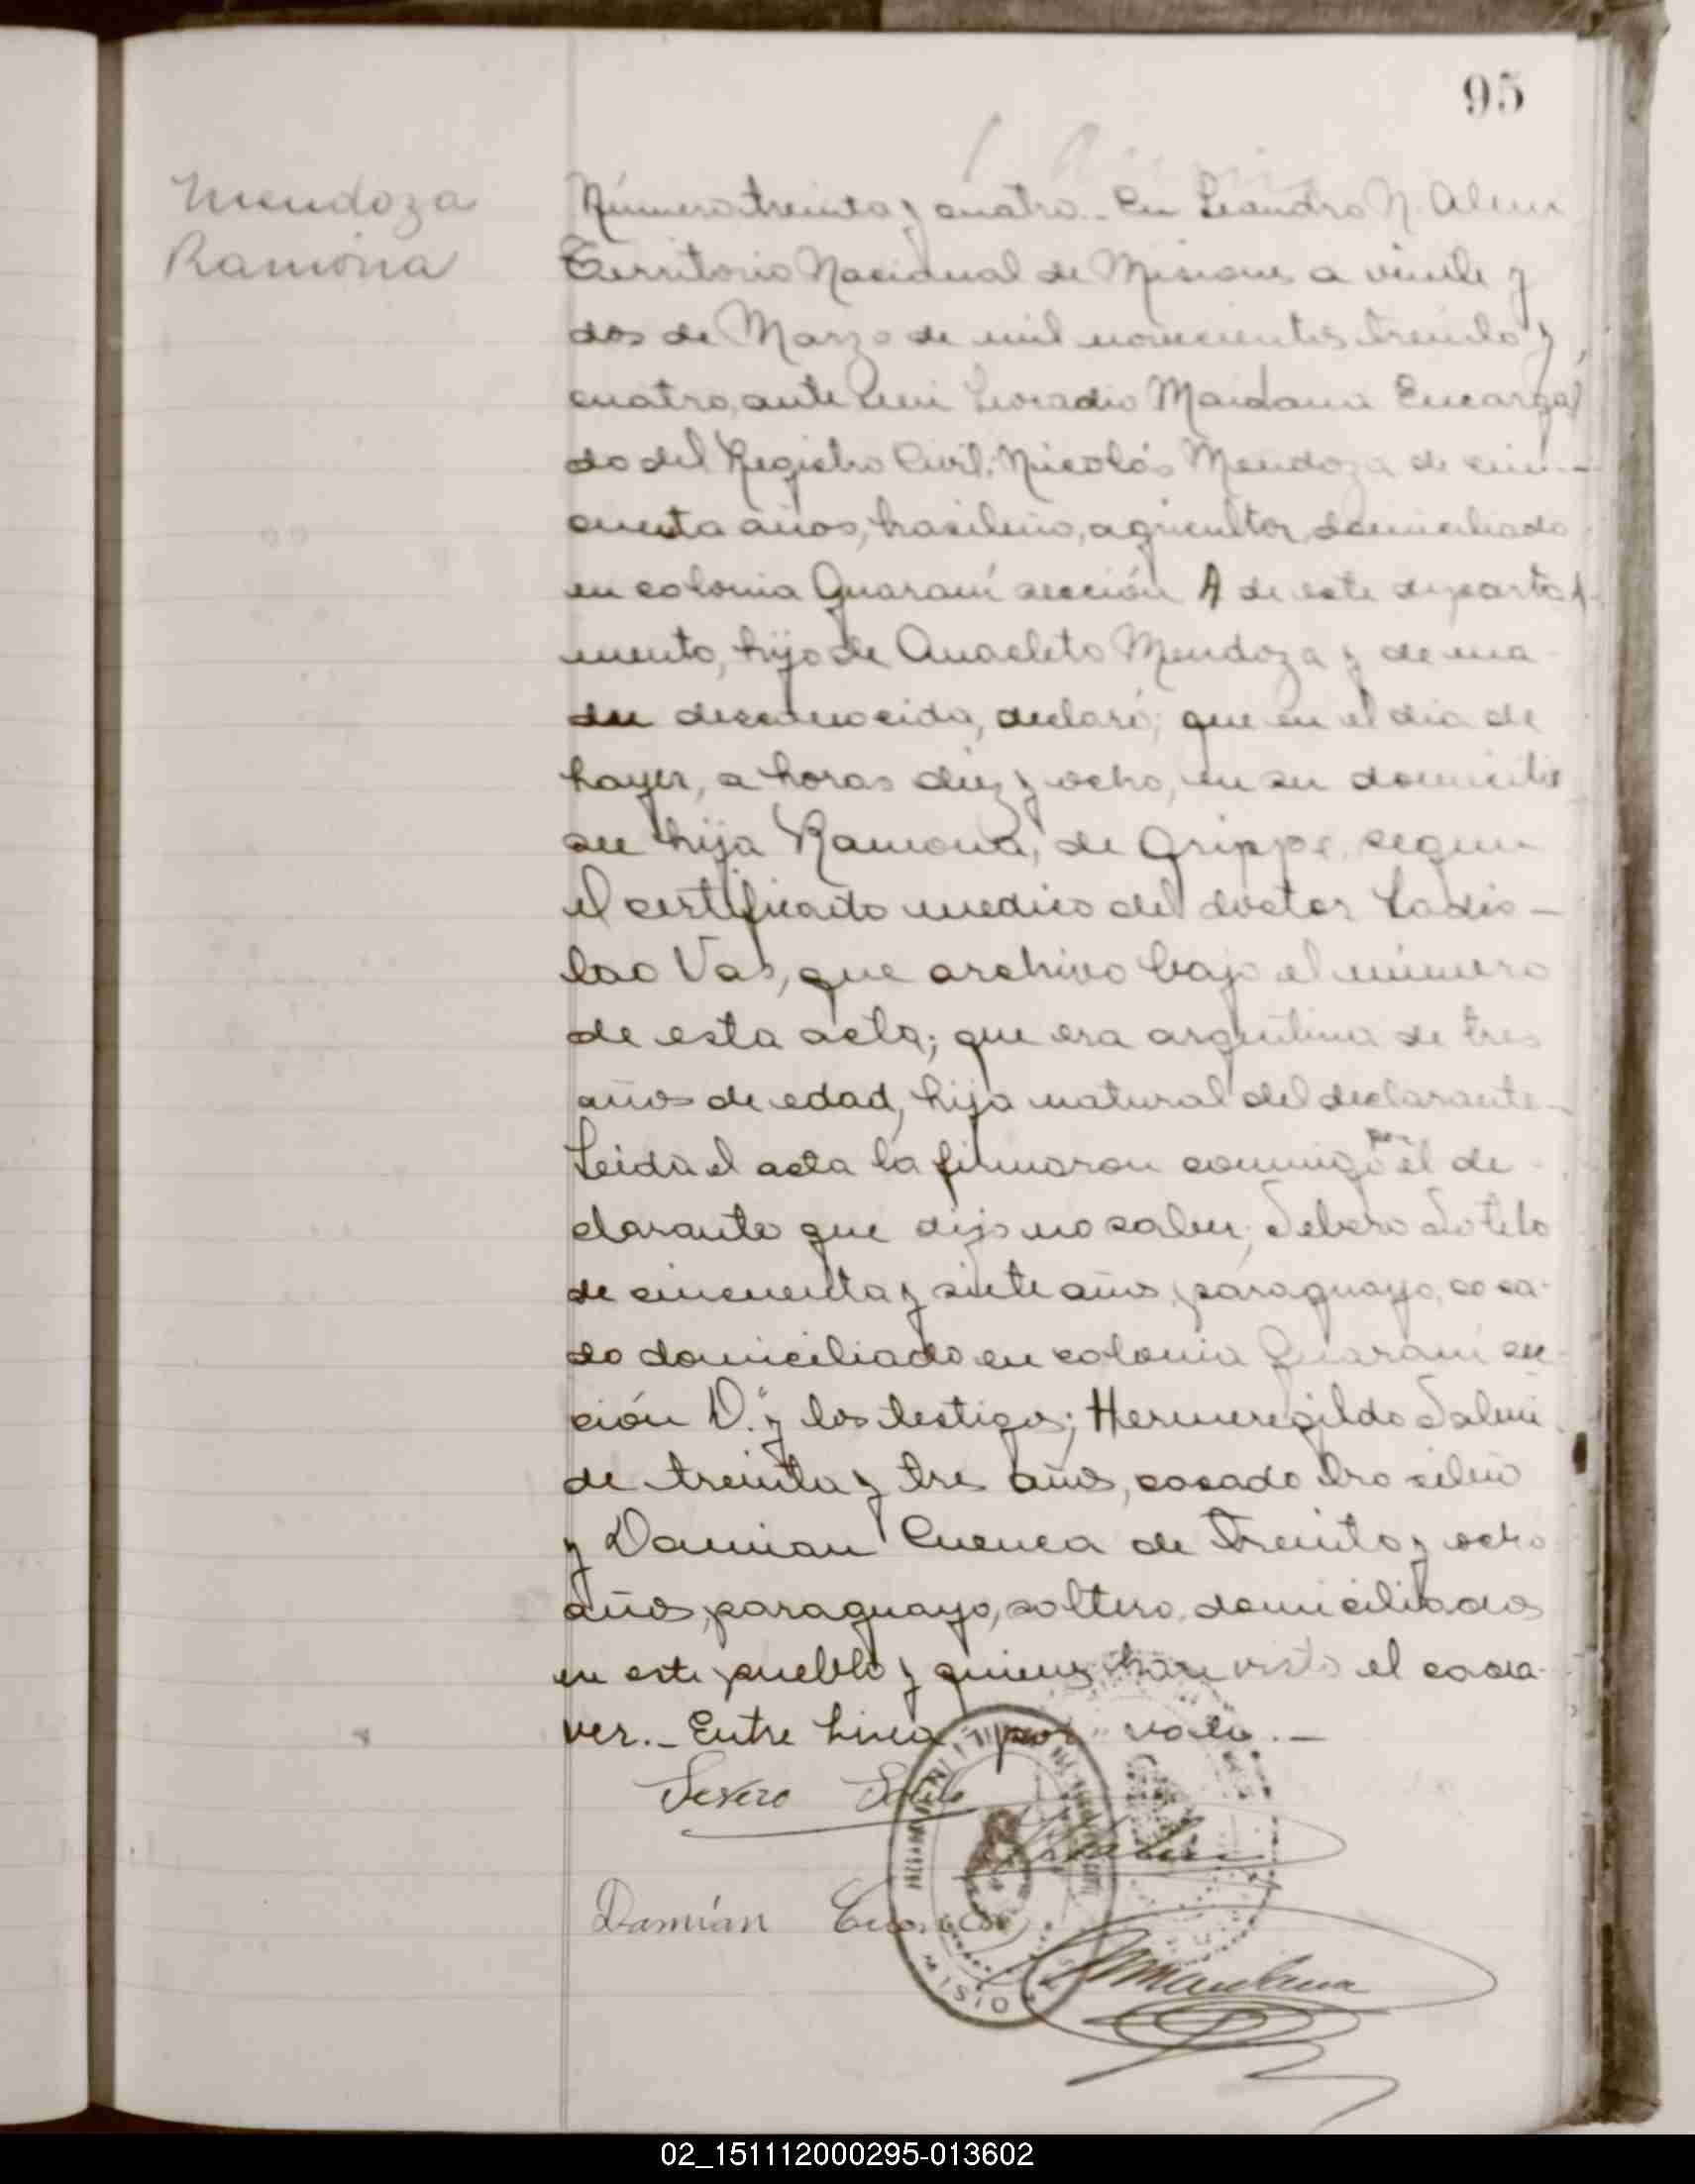 95
Mendoza
Ramona
Número treinta y cuatro.- En Leandro N. Alem
Territorio Nacional de Misiones a veinte y
dos de Marzo de mil novecientos treinta y
cuatro, ante mi Leocadio Maidana Encarga
do del Registro Civil; Nicolás Mendoza de cin-
cuenta años, brasileño, agricultor, domiciliado
en colonia Guaraní sección A de este departa
mento, hijo de Anacleto Mendoza y de ma-
dre desconocida, declaró; que en el dia de
hayer, a horas diez y ocho, en su domicilio
su hija Ramona, de Grippe, segun
el certificado medico del doctor Ladis-
lao Vas, que archivo bajo el número
de esta acta; que era argentina de tres
años de edad, hija natural del declarante-
Leida el acta la firmaron conmigo por el de-
clarante que dijo no saber; Sebero Sotelo
de cincuenta y siete años, paraguayo, casa-
do domiciliado en colonia Guaraní sec-
ción D." y los testigos; Hermeregildo Salvi
de treinta y tres años, casado brasileño
y Damian Cuenca de treinta y ocho
años, paraguayo, soltero, domiciliados
en este pueblo y quienes han visto el cada-
ver.- Entre linea " por " vale.-
Severo Sotelo
Damián Cuenca
MISIO
02_151112000295-013602